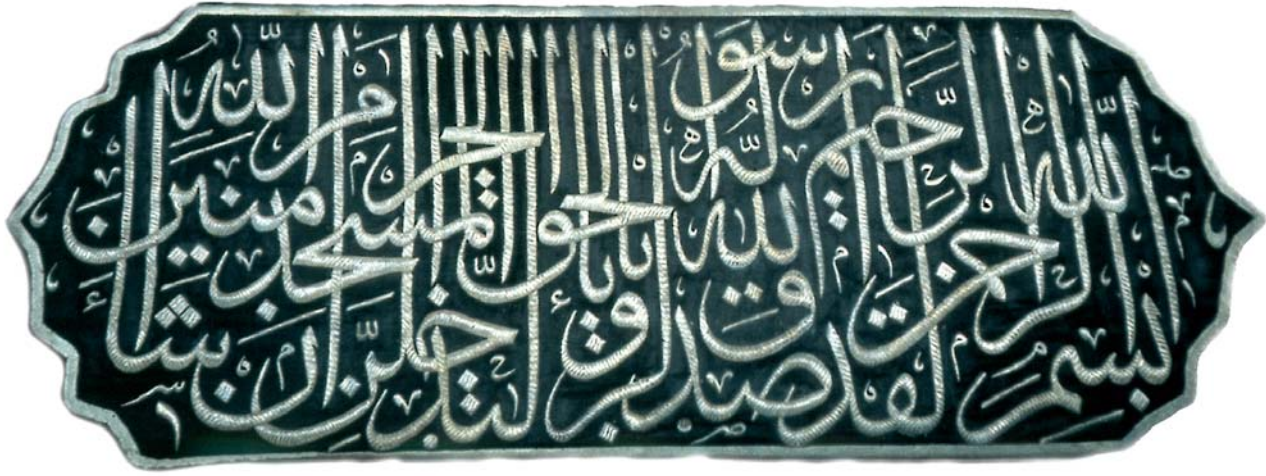 بسم الله الرحمن الرحيم لقد صدق الله رسوله الرءيا بالحق لتدخلن المسجد الحرام إن شاء الله ءامنين